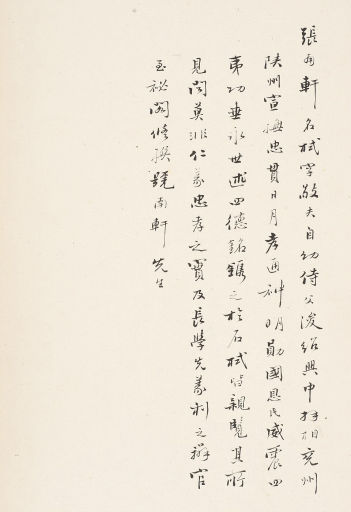 張南軒名栻字敬夫自幼侍父浚紹興中拜相兖州
陕州宣撫忠貫日月孝通神明勛國恩民威震四
夷功垂永世述四德銘鐫之於石栻皆親覽其所
見聞莫非仁義忠孝之實及長學先義利之辨官
至祕閣修撰號南軒先生